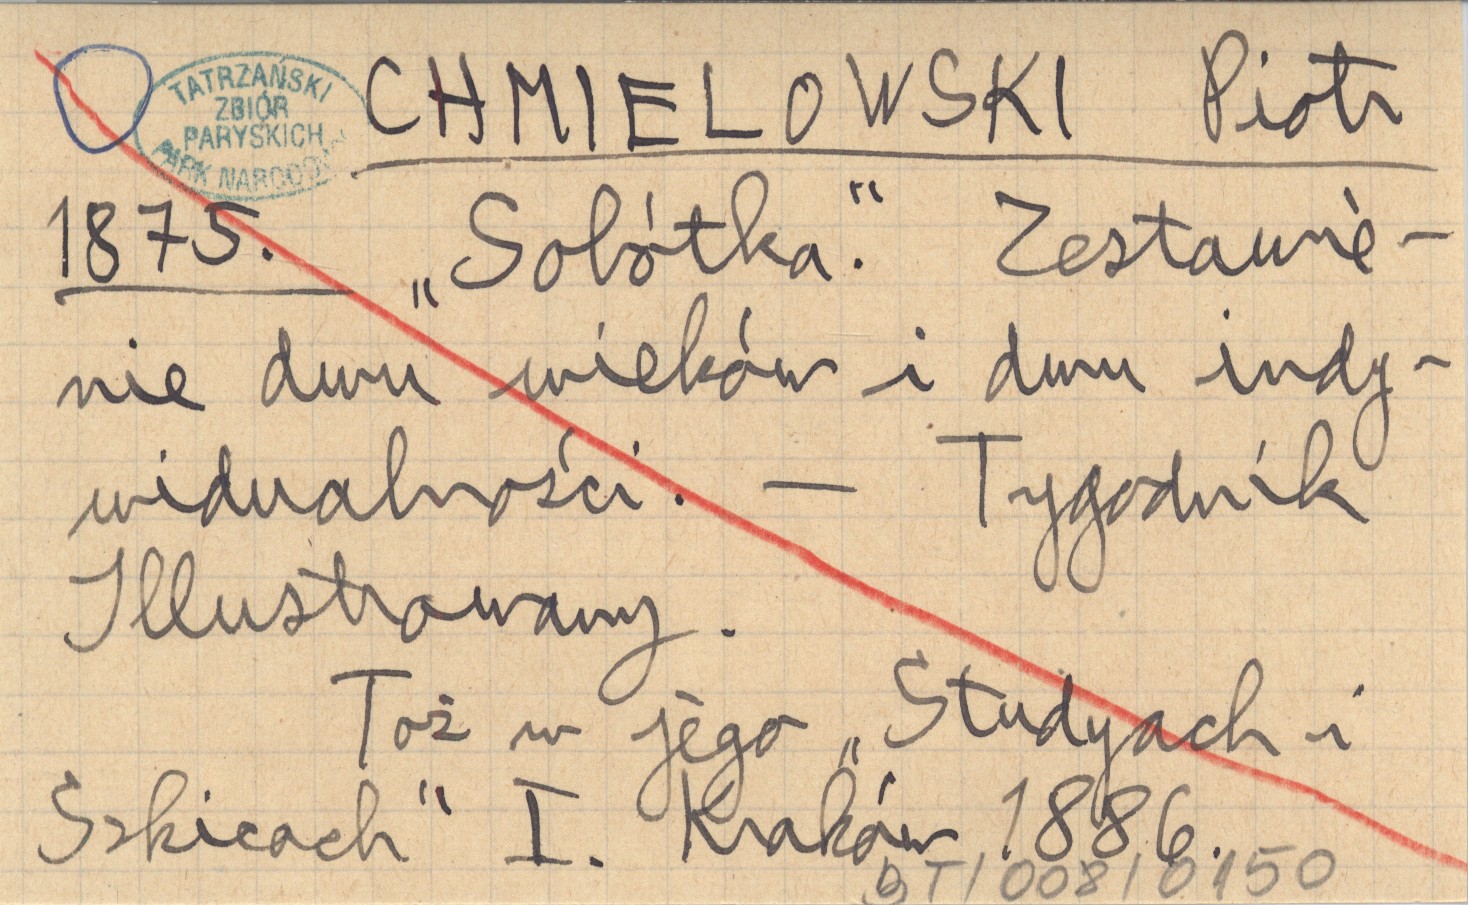 TATRZAŃSKI
ZBIÓR
PARYSKICH
PARK NARODOWY
CHMIELOWSKI Piotr
1875. „Sobótka.“ Zestawie-
nie dwu wieków i dwu indy-
widualności. — Tygodnik
Illustrowany.
Toż w jego „Studyach i
Szkicach“ I. Kraków 1886.
BT/008/0150